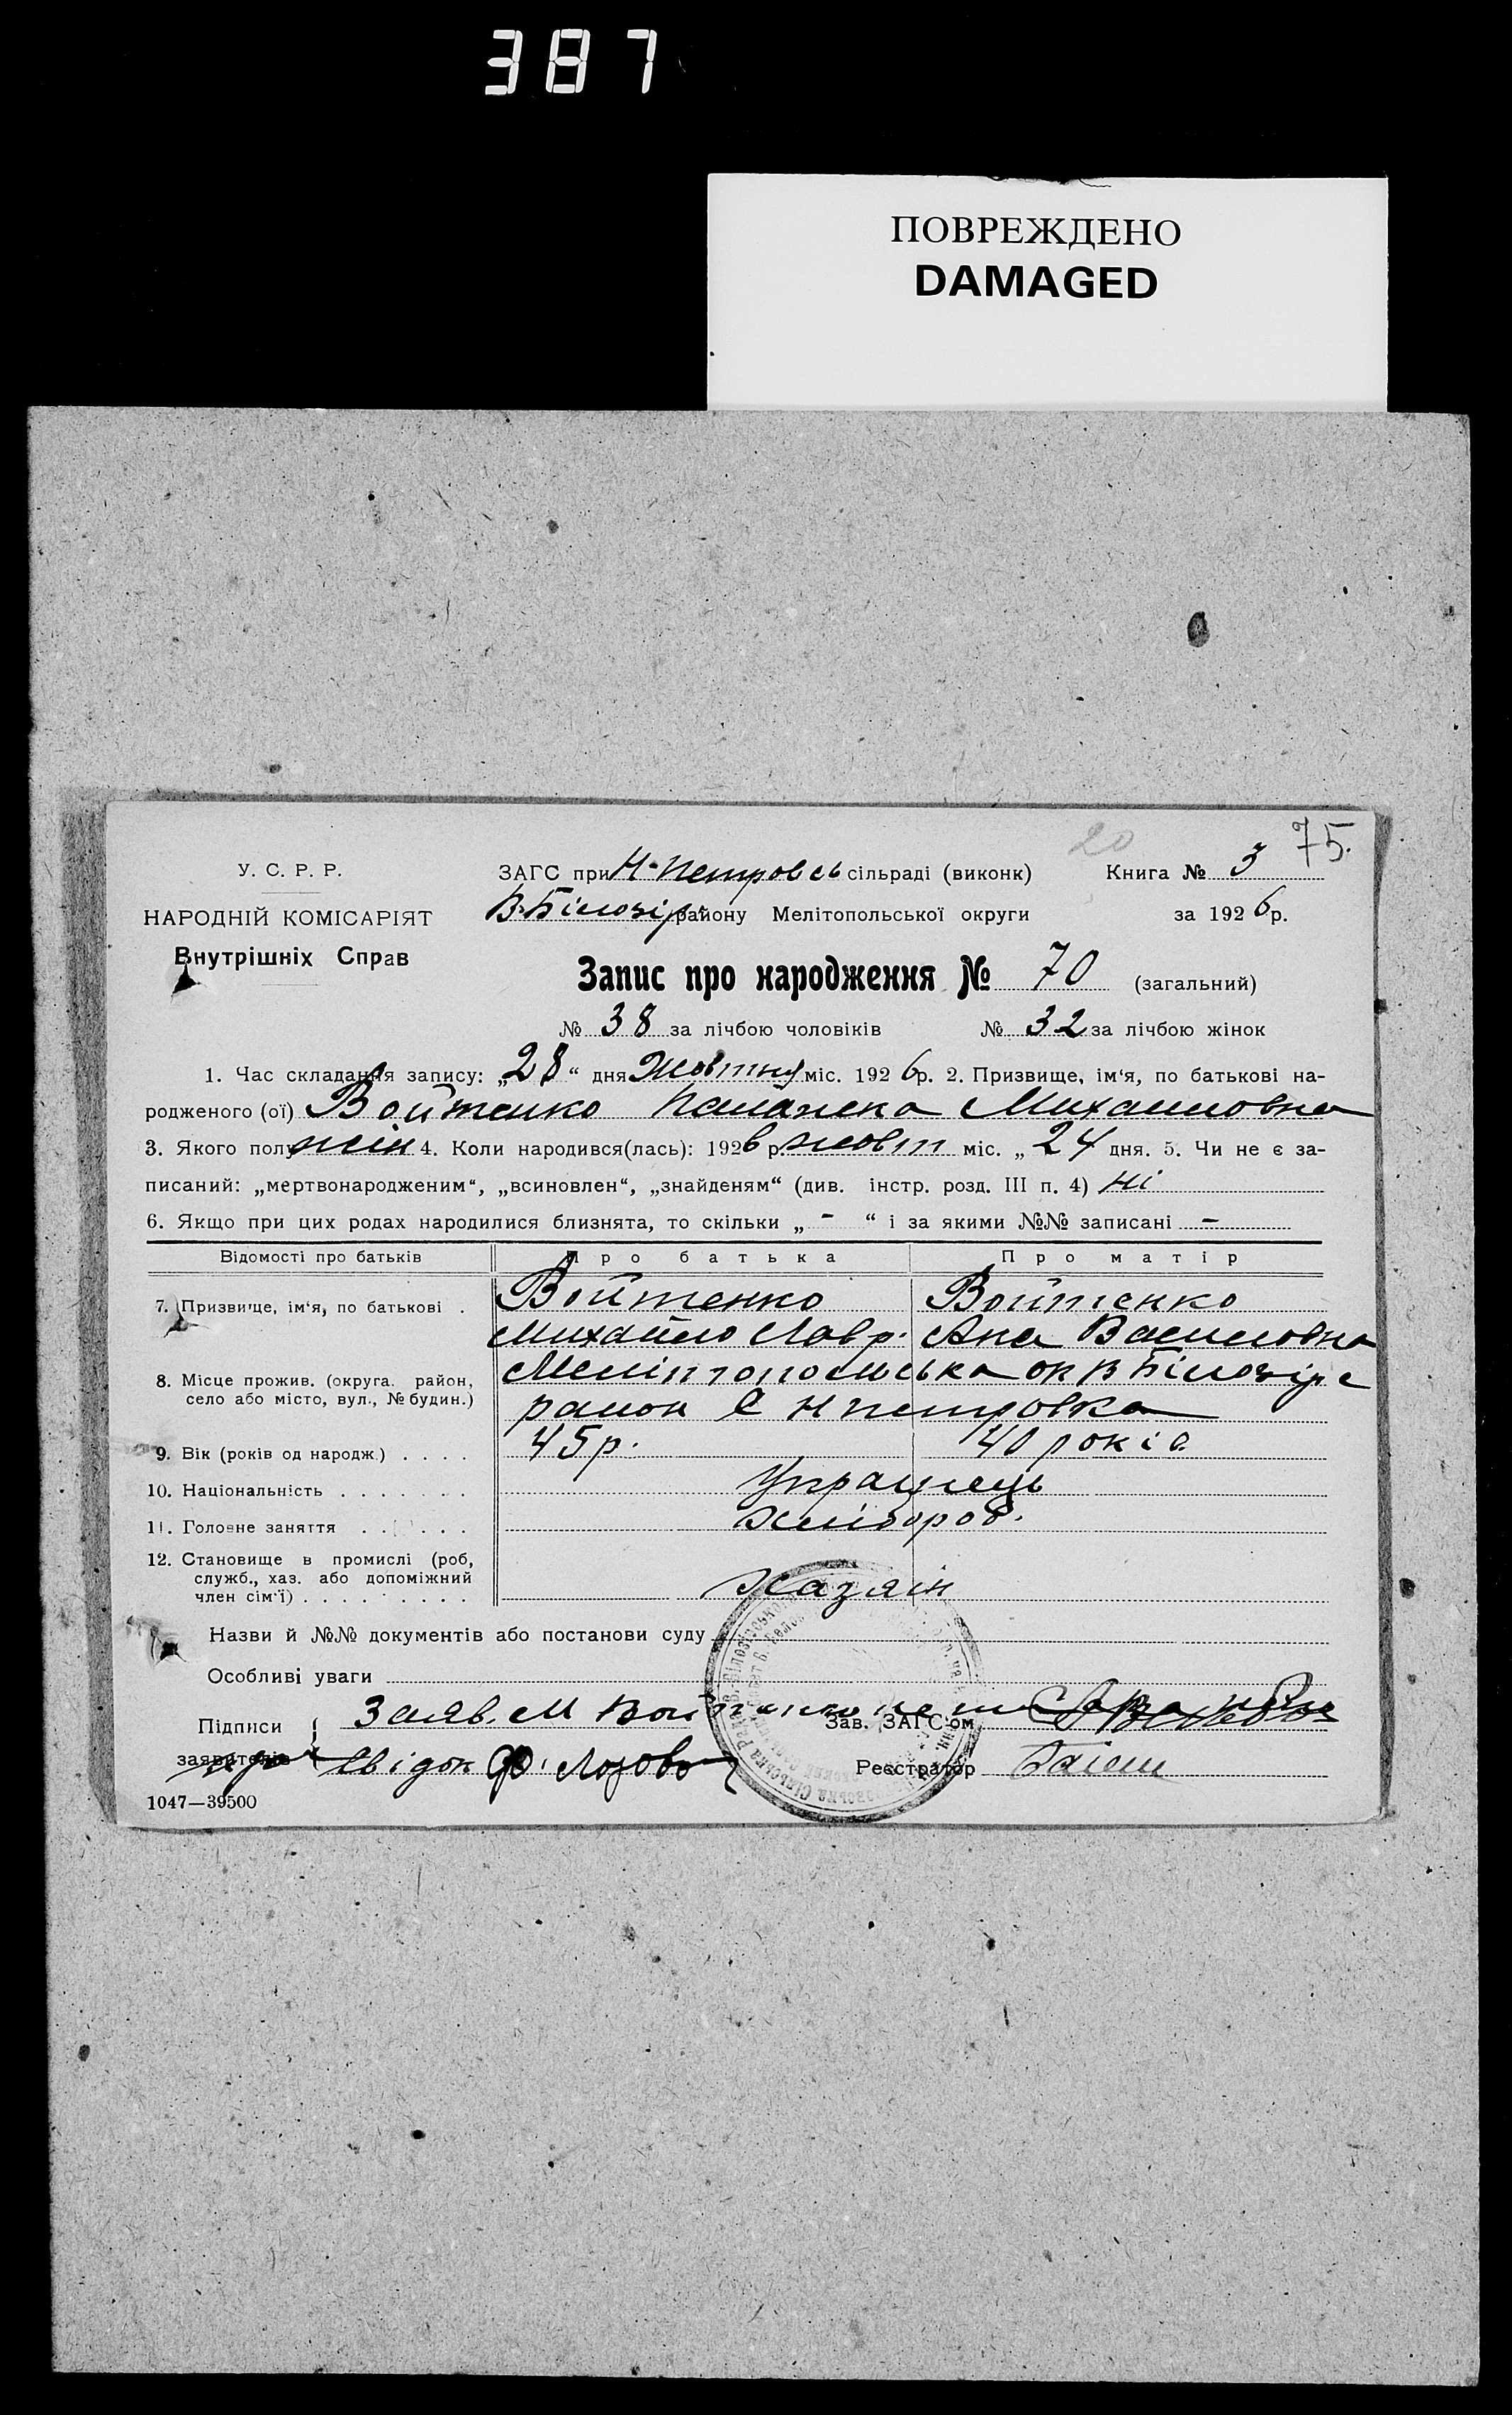 387
ПОВРЕЖДЕНО
DAMAGED
20 75.
У. С. Р. Р.
НАРОДНІЙ КОМІСАРІЯТ
Внутрішніх Справ
ЗАГС при Н-Петровсь сільраді (виконк) Книга № 3
В-Білозір району Мелітопольської округи за 1926р.
Запис про народження № 70 (загальний)
№ 38 за лічбою чоловіків № 32 за лічбою жінок
1. Час складання запису: „28“ дня Жовтня міс. 1926р. 2. Призвище, ім‘я, по батькові на-
родженого (ої) Войтенко Палажка Михайловна
3. Якого полу жін 4. Коли народився(лась): 1926 р. жовт міс. „24 дня. 5. Чи не є за-
писаний: „мертвонародженим“, „всиновлен“, „знайденям“ (див. інстр. розд. III п. 4) Ні
6. Якщо при цих родах народилися близнята, то скільки „ - “ і за якими №№ записані -
Відомості про батьків Про батька Про матір
7. Призвище, ім‘я, по батькові . Войтенко Войтенко
Михайло Лавр. Ана Василовна
8. Місце прожив. (округа. район, Мелітопольська ок В Білозірс
село або місто, вул., № будин.) район С Н петровка
9. Вік (років од народж.) . . . . 45р. 40 років
10. Національність . . . . . . . Украінець
11. Головне заняття . . . . . Хлібороб.
12. Становище в промислі (роб,
служб., хаз. або допоміжний
член сім‘ї) . . . . . . . . . Хазяін
Назви й №№ документів або постанови суду
Особливі уваги
Підписи { Заяв. М Войтенко Зав. ЗАГС‘ом
заявителів Свідок Ф. Лозово Реєстратор
1047—39500